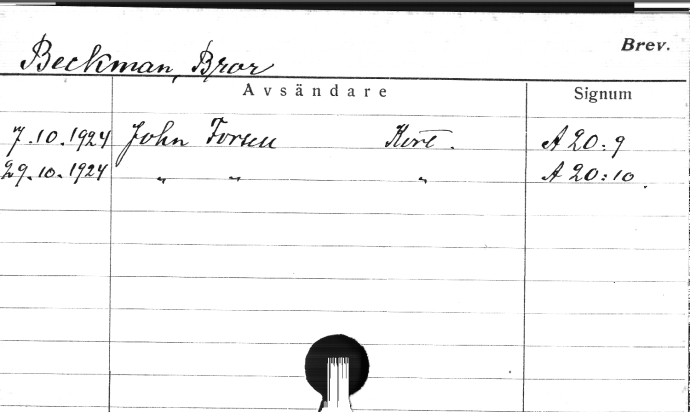 Brev.
Beckman, Bror
Avsändare Signum
7.10.1924 John Forsell Kort. A 20:9
29.10.1924 " " " A 20:10.